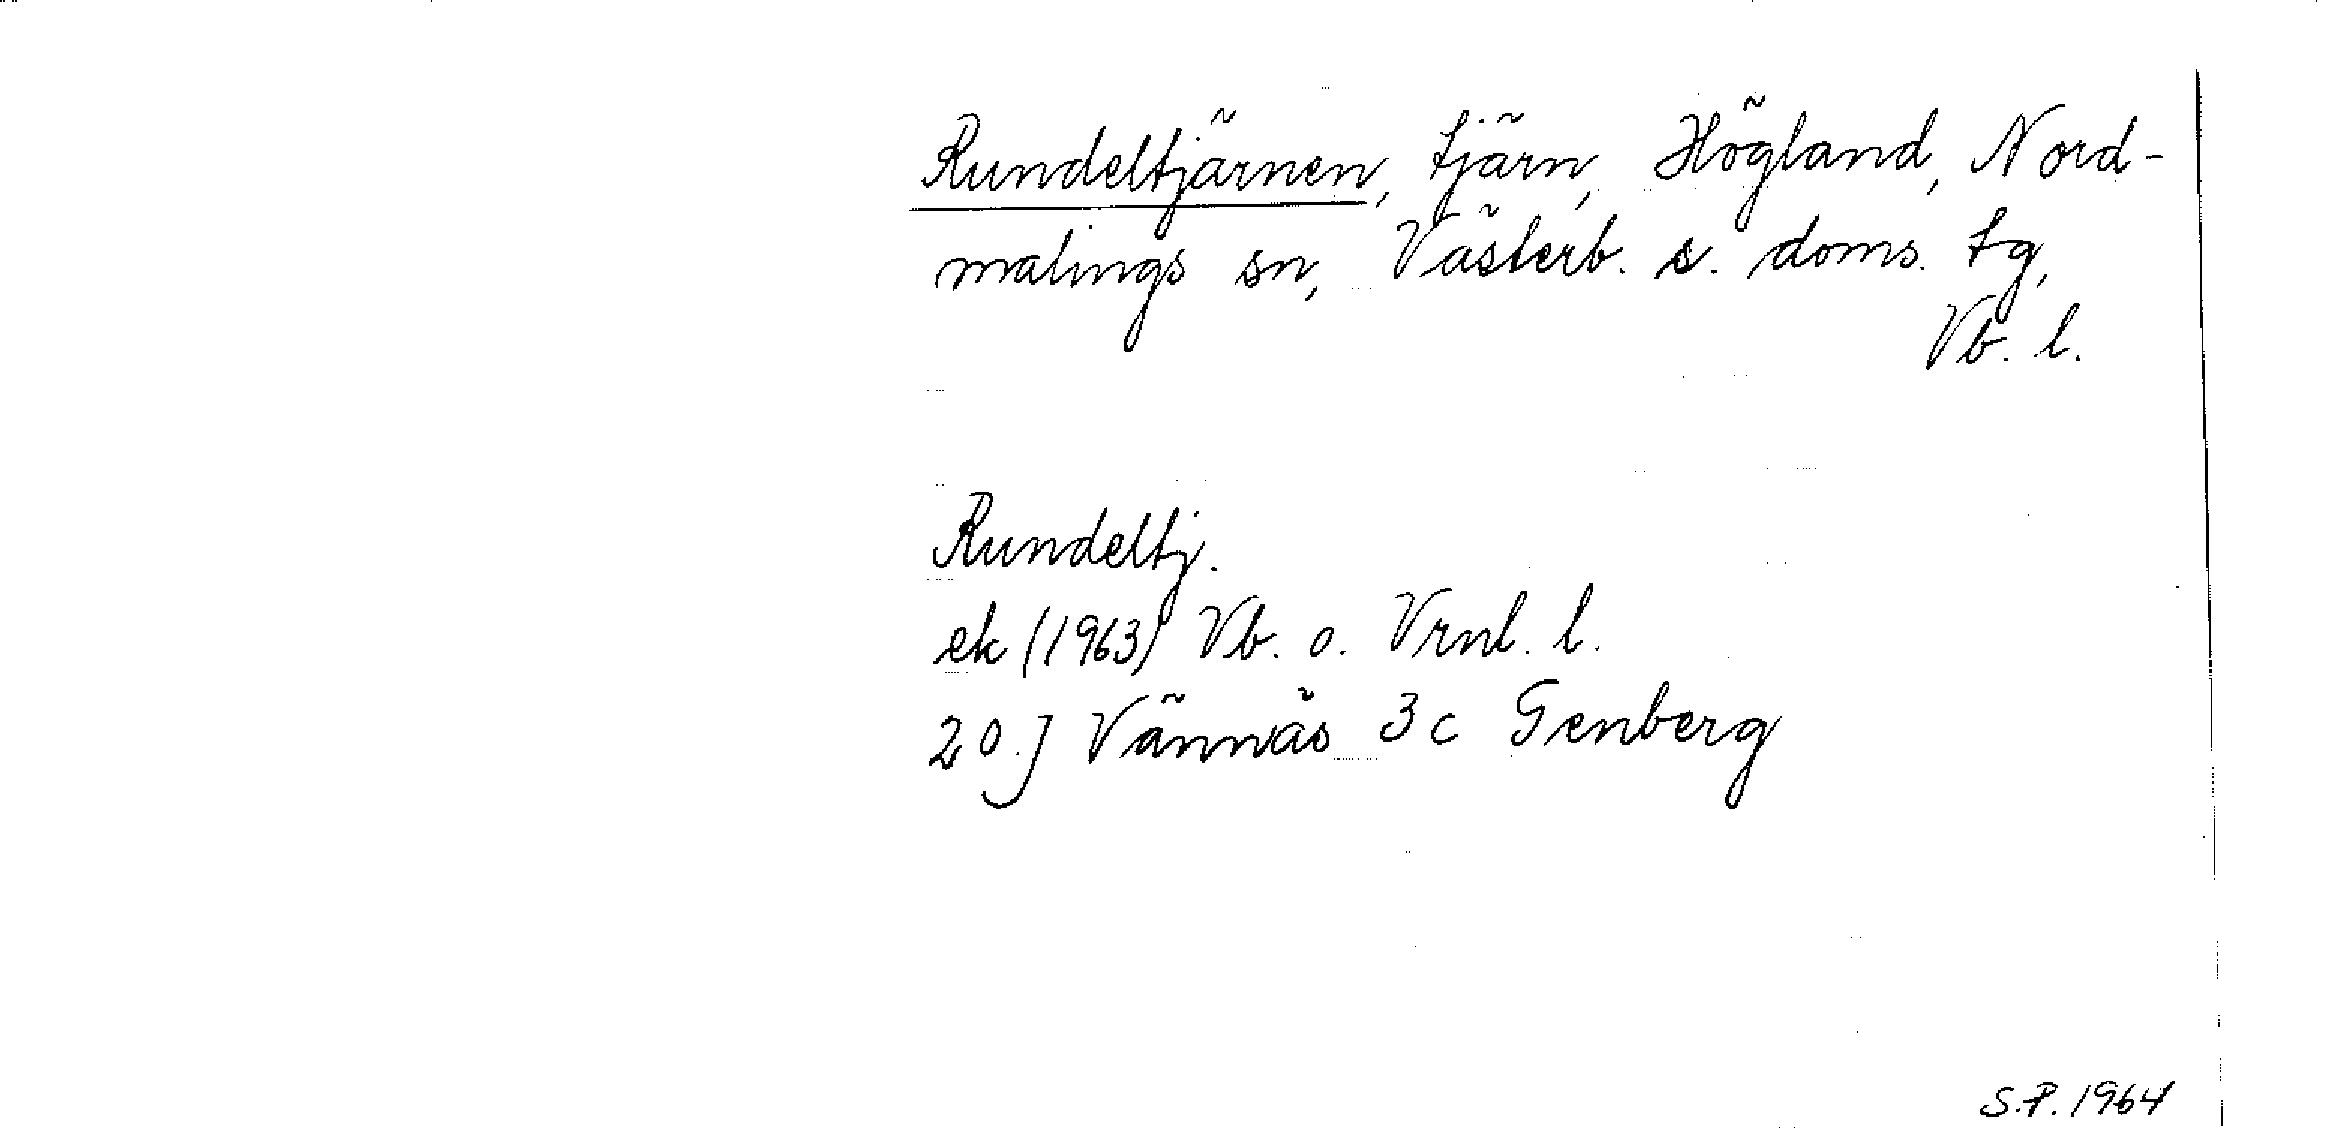 Rundeltjärnen, tjärn, Högland, Nord-
malings sn, Västerb. s. doms. tg,
Vb. l.
Rundeltj.
ek (1963) Vb. o. Vrnl. l.
20 J Vännäs 3c Genberg
S.P. 1964